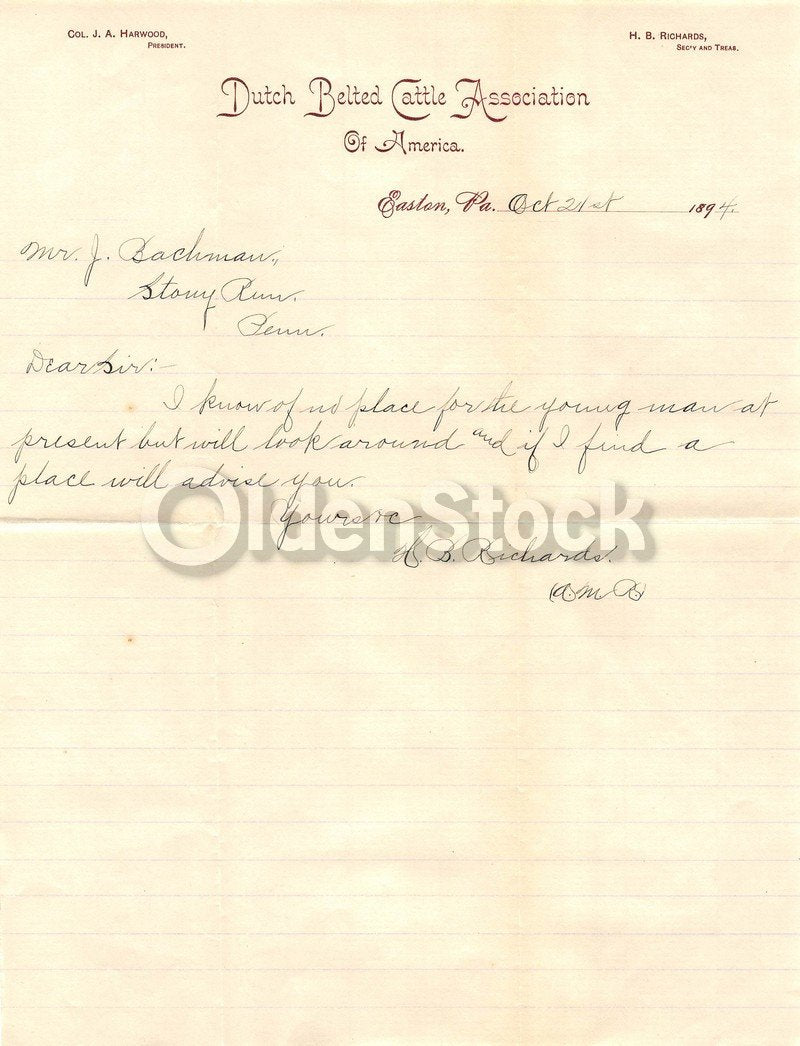 COL. J. A. HARWOOD,
PRESIDENT.
H. B. RICHARDS,
SEC'Y AND TREAS.
Dutch Belted Cattle Association
Of America.
Easton, Pa. Oct 21st 1894.
Mr. J. Bachman.,
Stony Run.
Penn.
Dear Sir:—
I know of no place for the young man at
present but will look around and if I find a
place will advise you.
Yours &c
OldenStock
H. B. Richards.
(A.M.R)